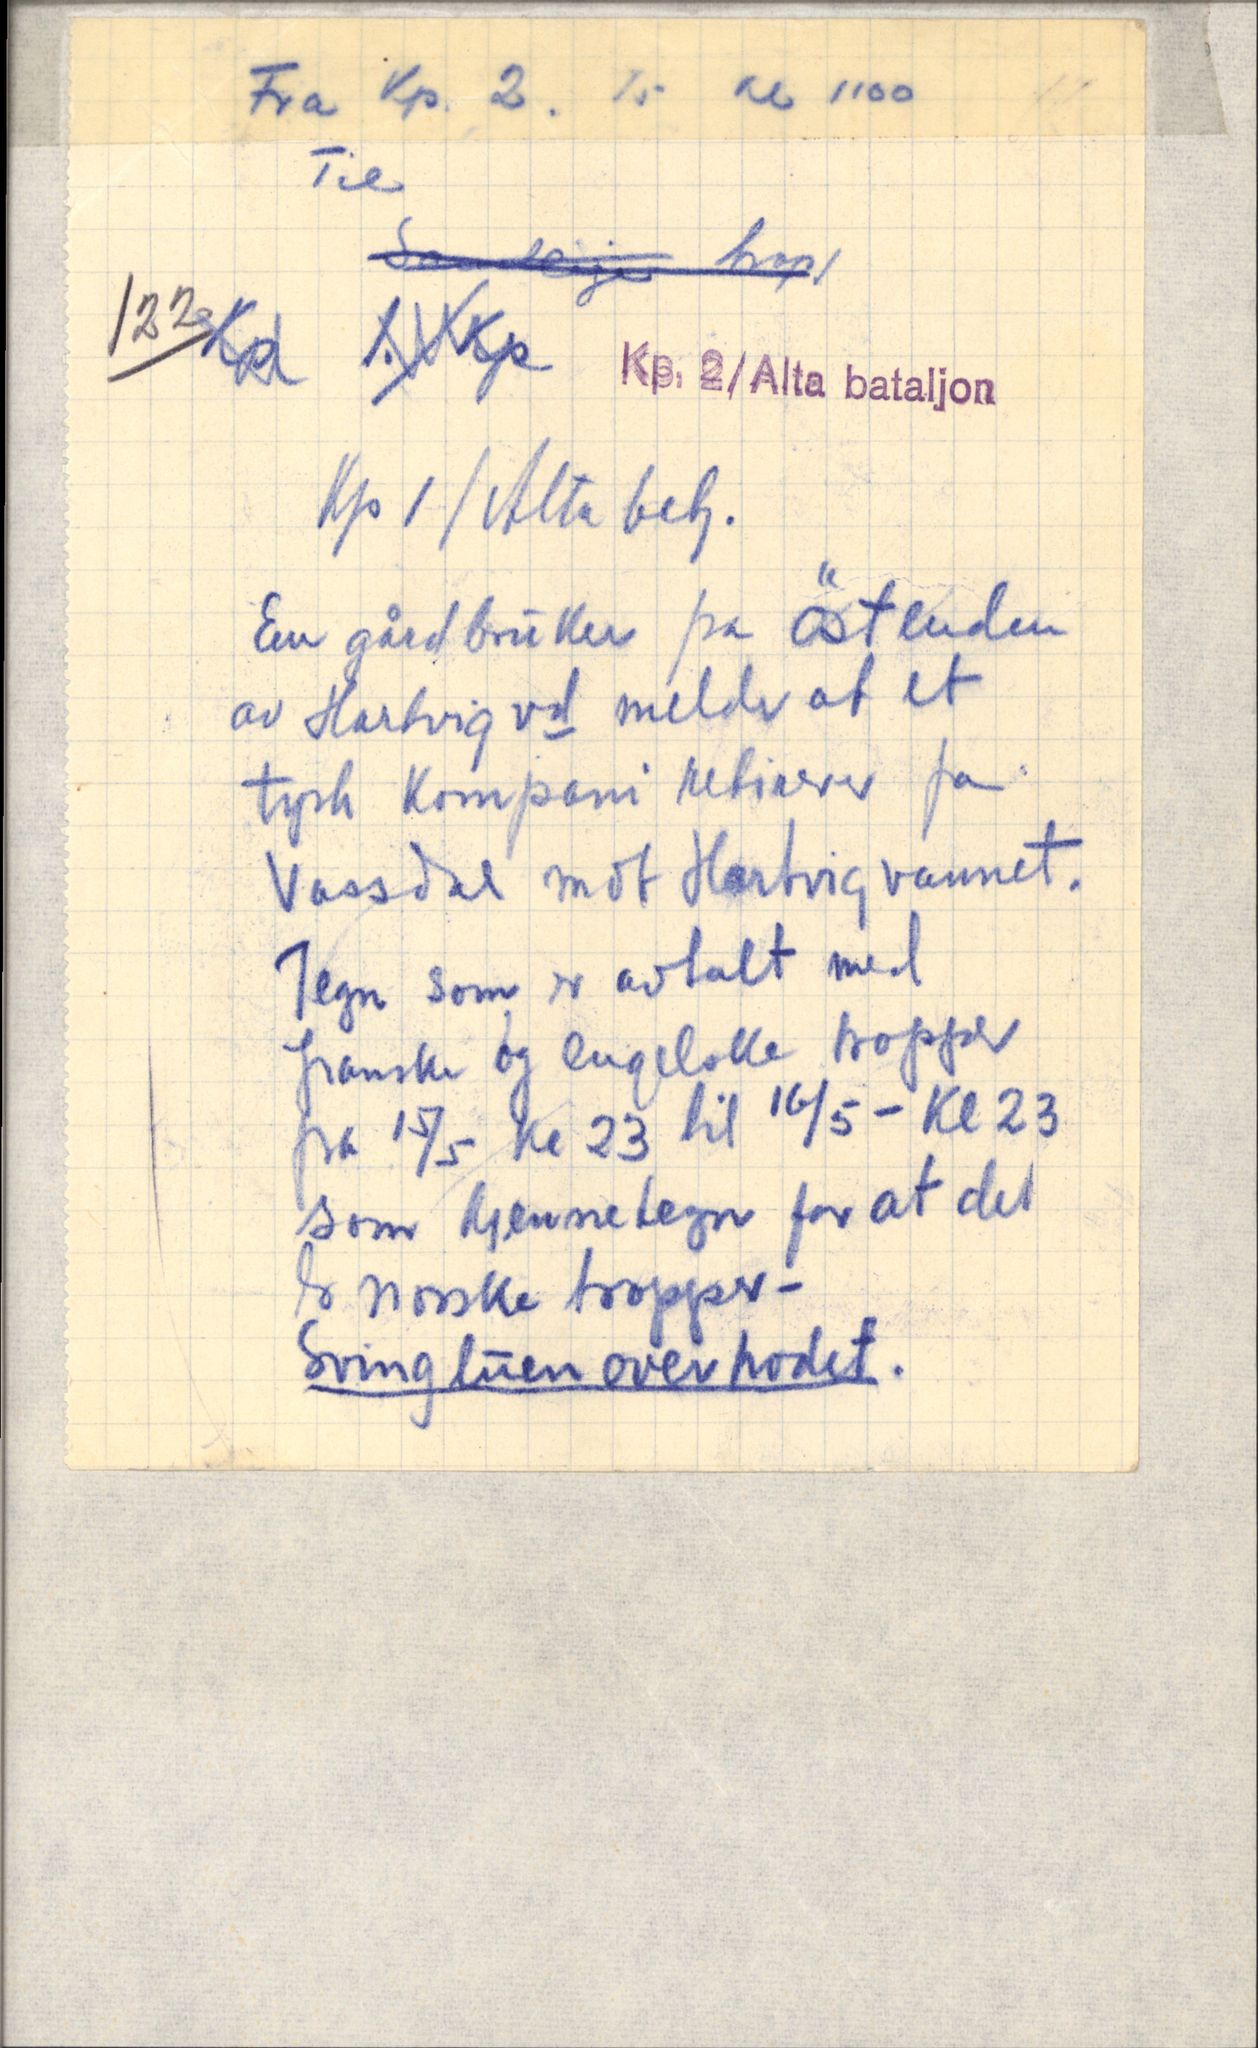 Fra Kp. 2. Kl 1100
Til
Samtlige trop
122 Kp 1. Kp
Kp. 2/Alta bataljon
Kp 1/Alta batj.
En gårdbruker på östenden
av Hartvigvd melder at et
tysk kompani retirerer fra
Vassdal mot Hartvigvannet.
Tegn som er avtalt med
franske og engelske tropper
fra 15/5 Kl 23 til 16/5 – Kl 23
som kjennetegn for at det
er norske tropper –
Sving luen over hodet.